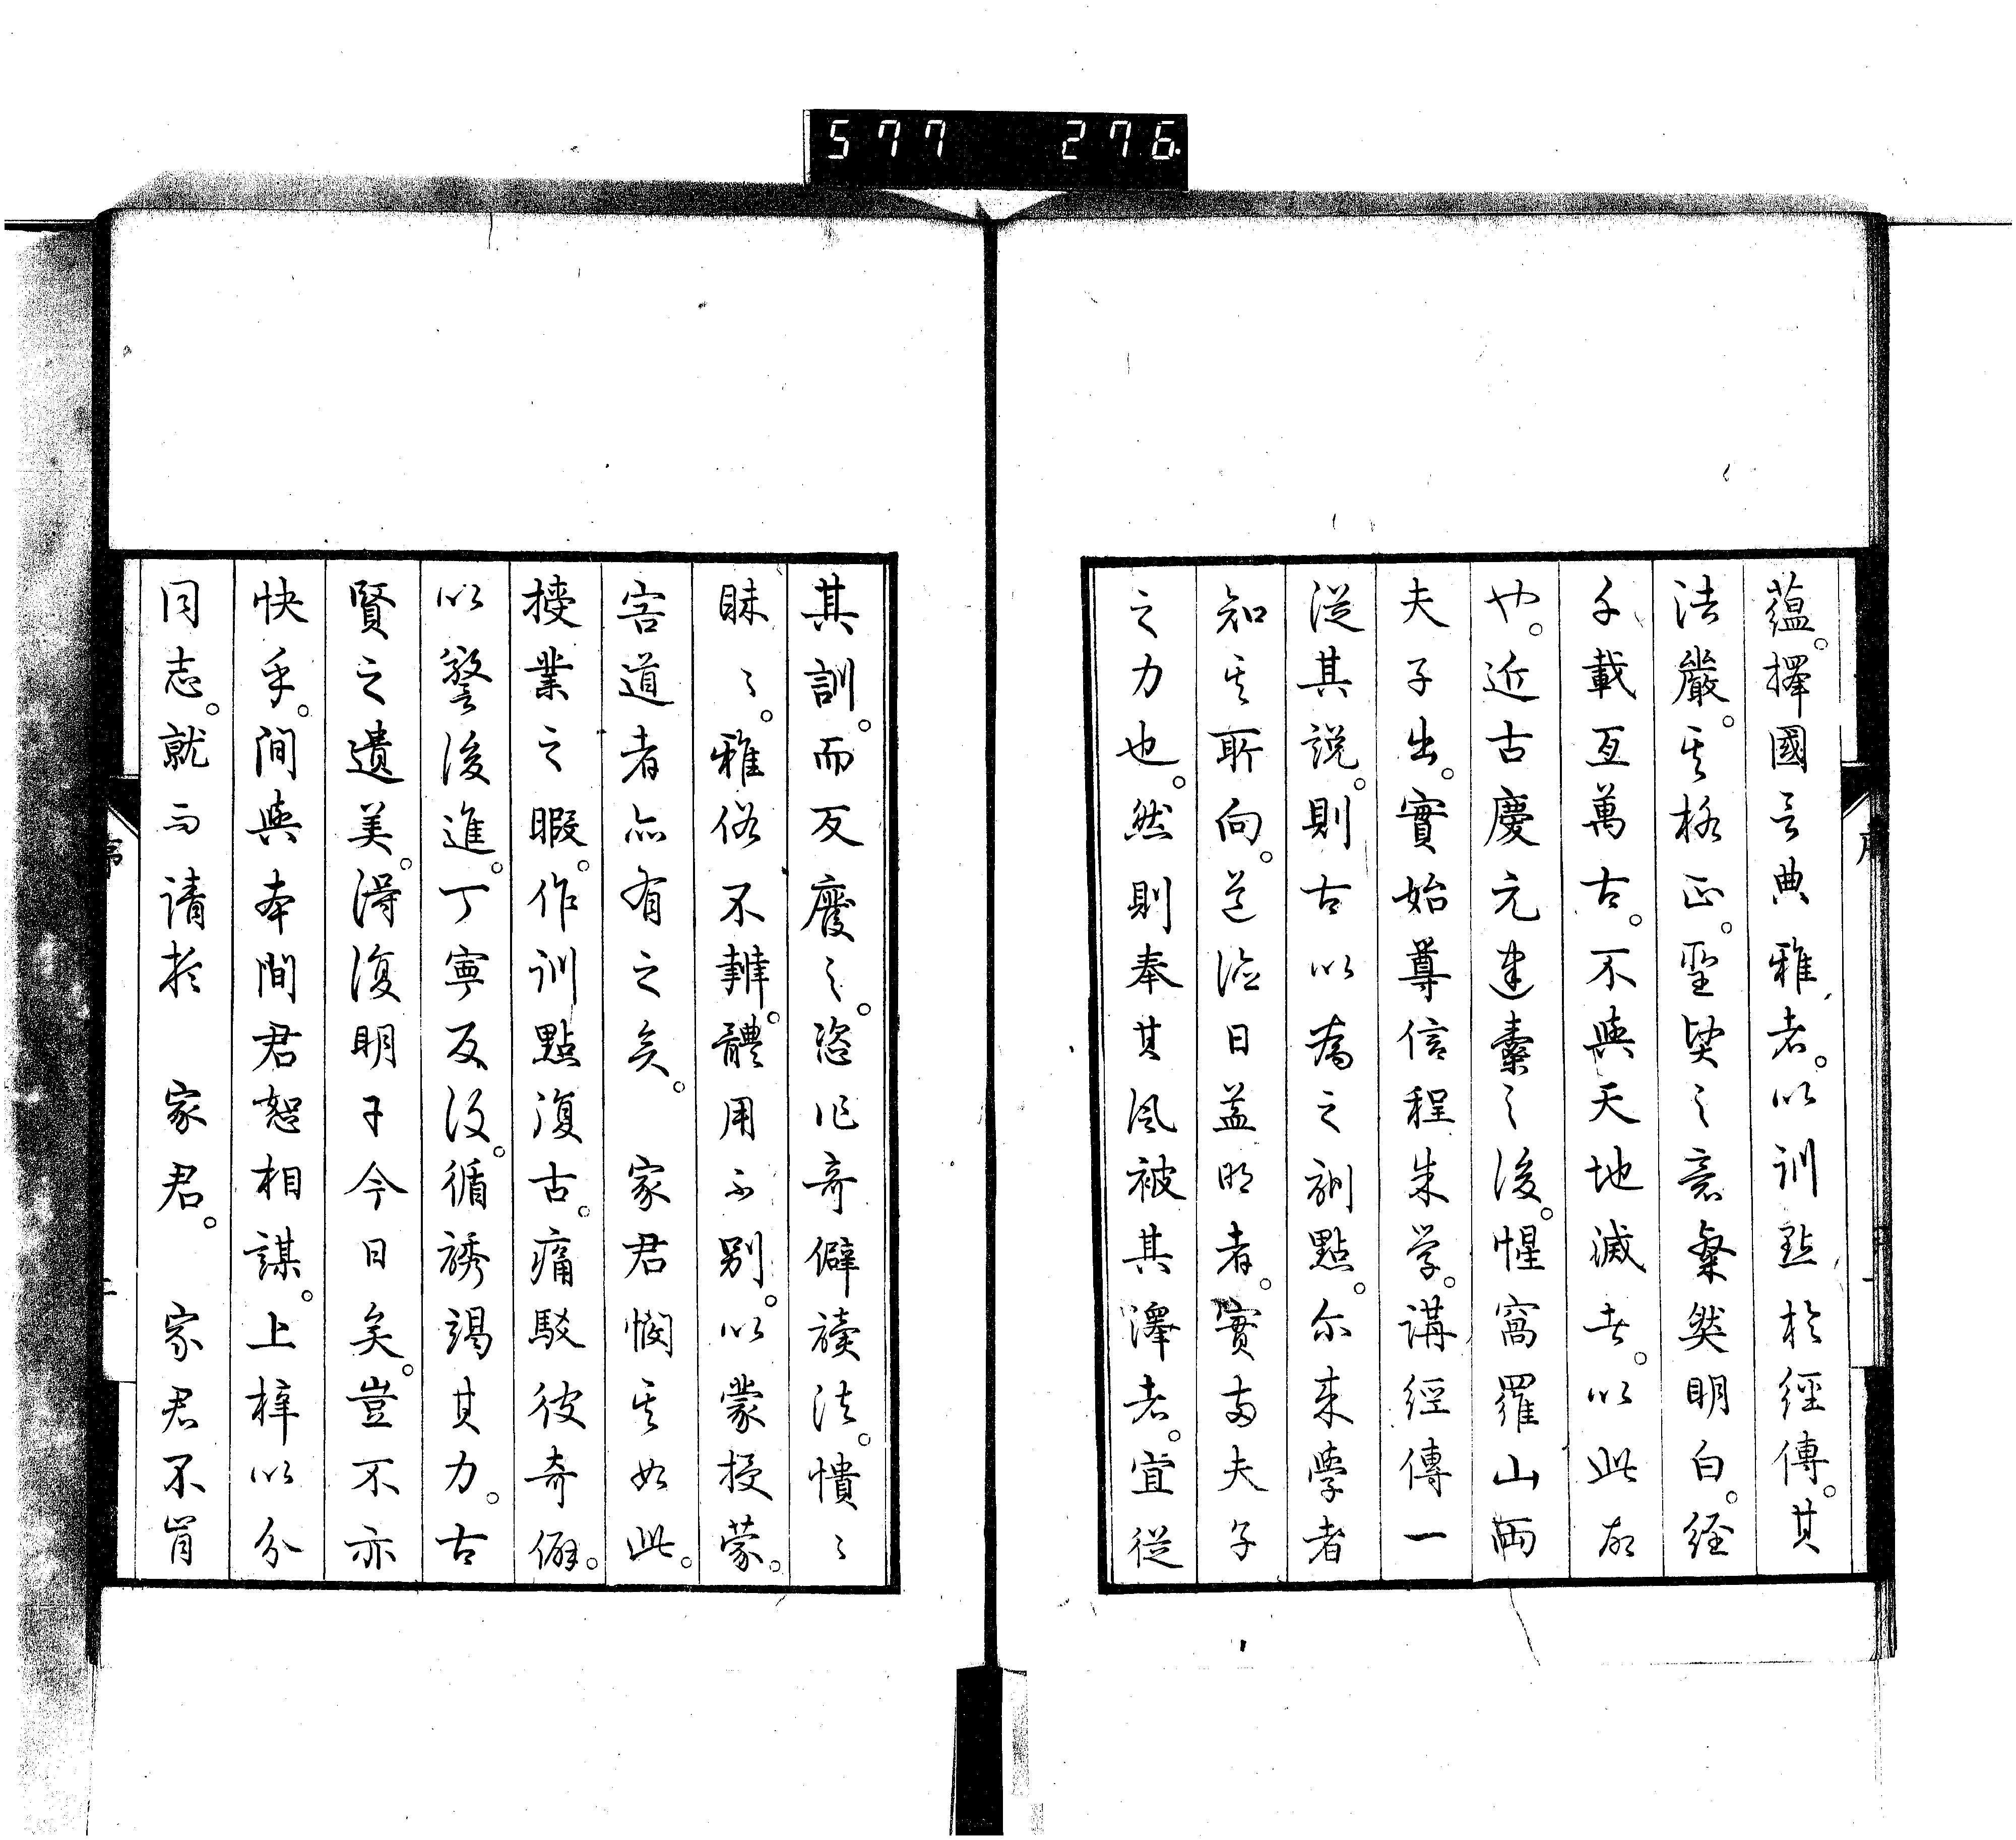 577 276
蘊。擇國言典雅者。以訓點於經傳。其
法嚴。其格正。聖賢之意粲然明白。經
千載亙萬古。不與天地滅者。以此故
也。近古慶元建櫜之後。惺窩羅山兩
夫子出。實始尊信程朱学。講經傳一
從其說。則古以為之訓點。尓来學者
知其所向。道德日益明者。實两夫子
之力也。然則奉其風被其澤者。宜從
其訓。而反廢之。恣作奇僻讀法。憒々
眛々。雅俗不辨。體用不別。以蒙授蒙。
害道者亦有之矣。 家君憫其如此。
授業之暇。作訓點復古。痛駁彼奇僻。
以警後進。丁寧反復。循誘竭其力。古
賢之遺美。得復明于今日矣。豈不亦
快乎。間與本間君恕相謀。上梓以分
同志。就而请於 家君。 家君不肯
序
二